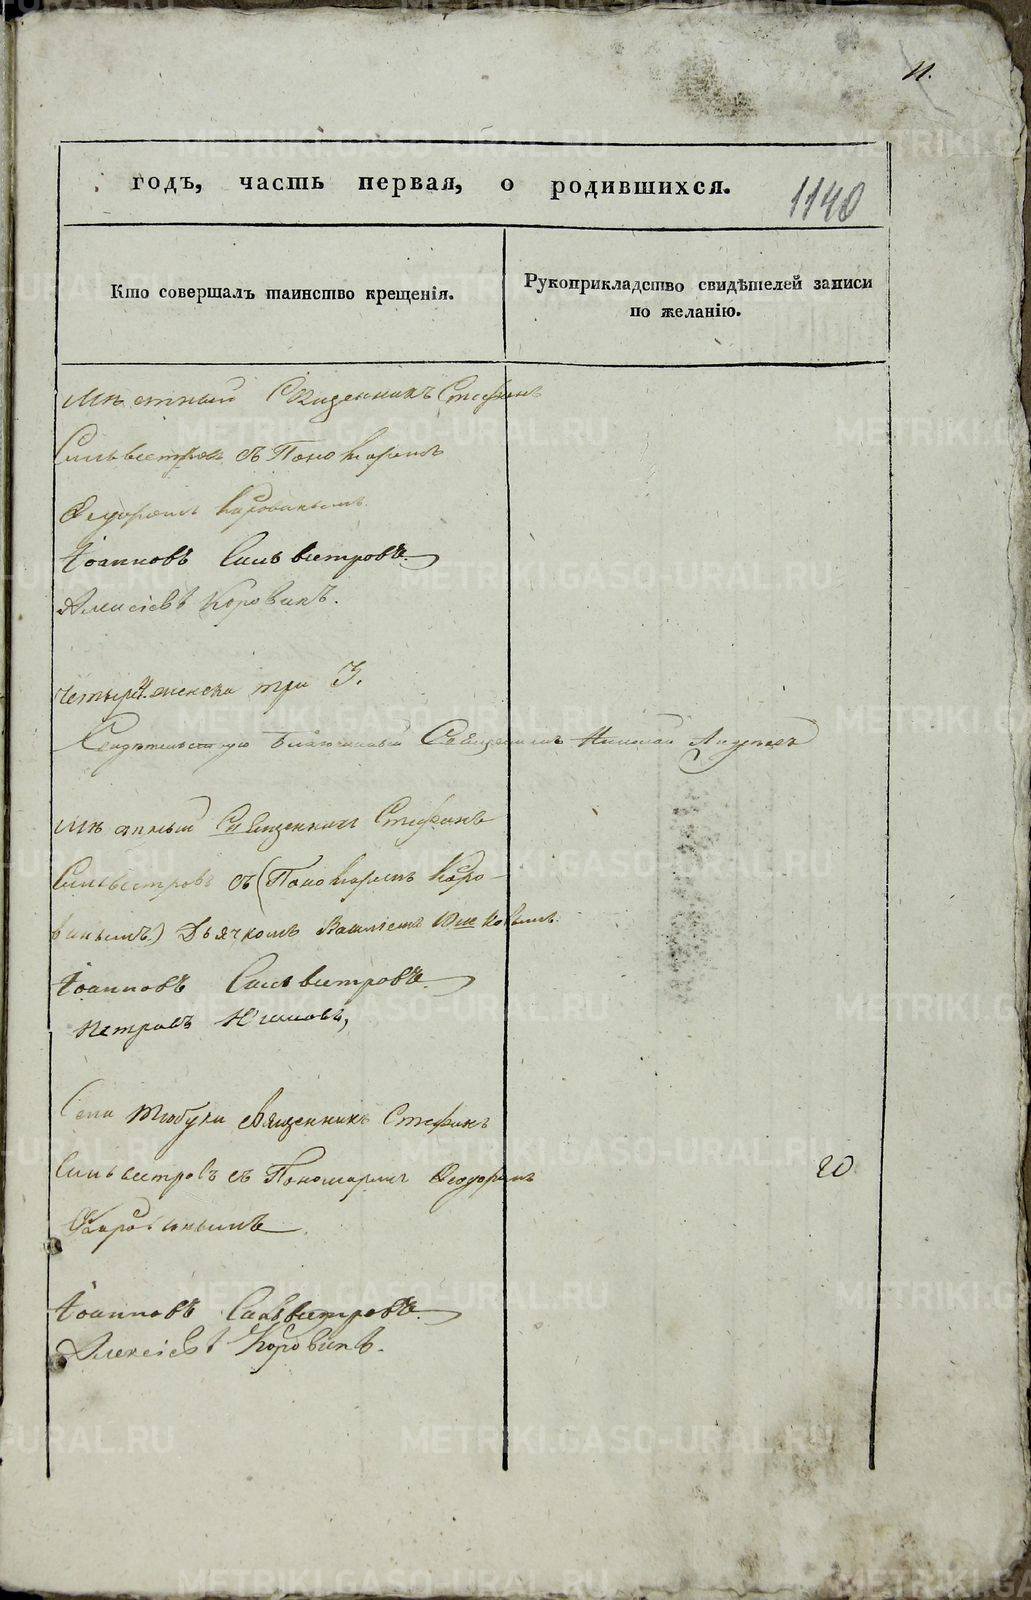 11.
годъ, часть первая, о родившихся.
1140
Кто совершалъ таинство крещенія.
Рукоприкладство свидѣтелей записи
по желанію.
Мѣстный Священникъ Стефанъ
Сильвестровъ съ Пономаремъ
Ѳедоромъ Коровинымъ
Іоанновъ Сильвестровъ.
Алексіевъ Коровинъ.
четыре 4. женска три 3.
Свидѣтельствую Благочинный Священникъ Николай
Мѣстный Священникъ Стефанъ
Сильвестровъ съ (Пономаремъ Коро-
винымъ.) Дьячкомъ
Іоанновъ Сильвестровъ.
Петровъ Юшковъ,
Села Тюбука священникъ Стефанъ
Сильвестровъ съ Пономаремъ Ѳеодоромъ
20
Коровинымъ.
Іоанновъ Сильвестровъ.
Алексіевъ Коровинъ.
METRIKI.GASO-URAL.RU